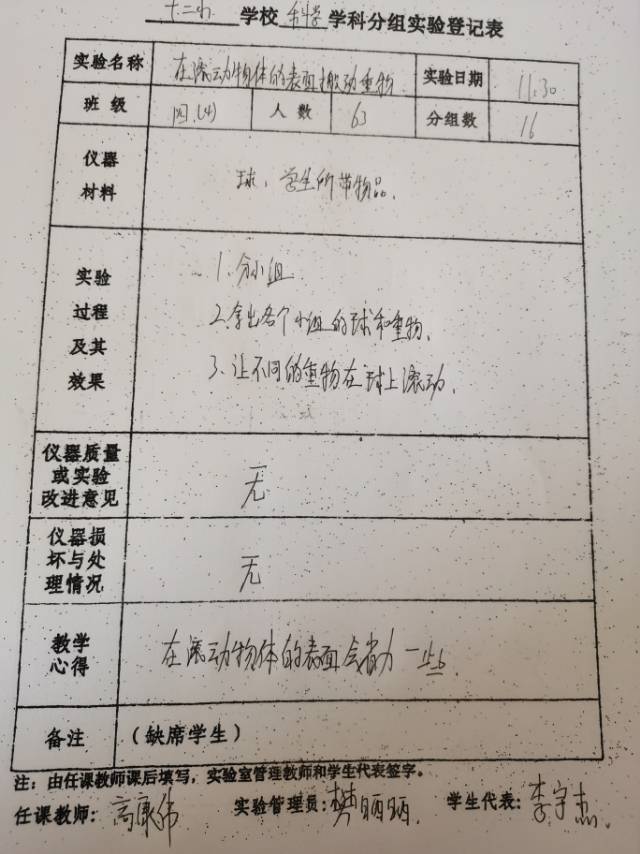 十二小 学校 科学 学科分组实验登记表
实验名称 在滚动物体的表面搬动重物 实验日期 11.30
班级 四.(4) 人数 63 分组数 16
仪器材料 球、学生所带物品.
实验过程及其效果
1.分小组
2.拿出各个小组的球和重物.
3.让不同的重物在球上滚动.
仪器质量或实验改进意见 无
仪器损坏与处理情况 无
教学心得 在滚动物体的表面会省力一些.
备注 (缺席学生)
注:由任课教师课后填写,实验室管理教师和学生代表签字。
任课教师:高康伟 实验管理员:樊丽丽. 学生代表:李宇杰.